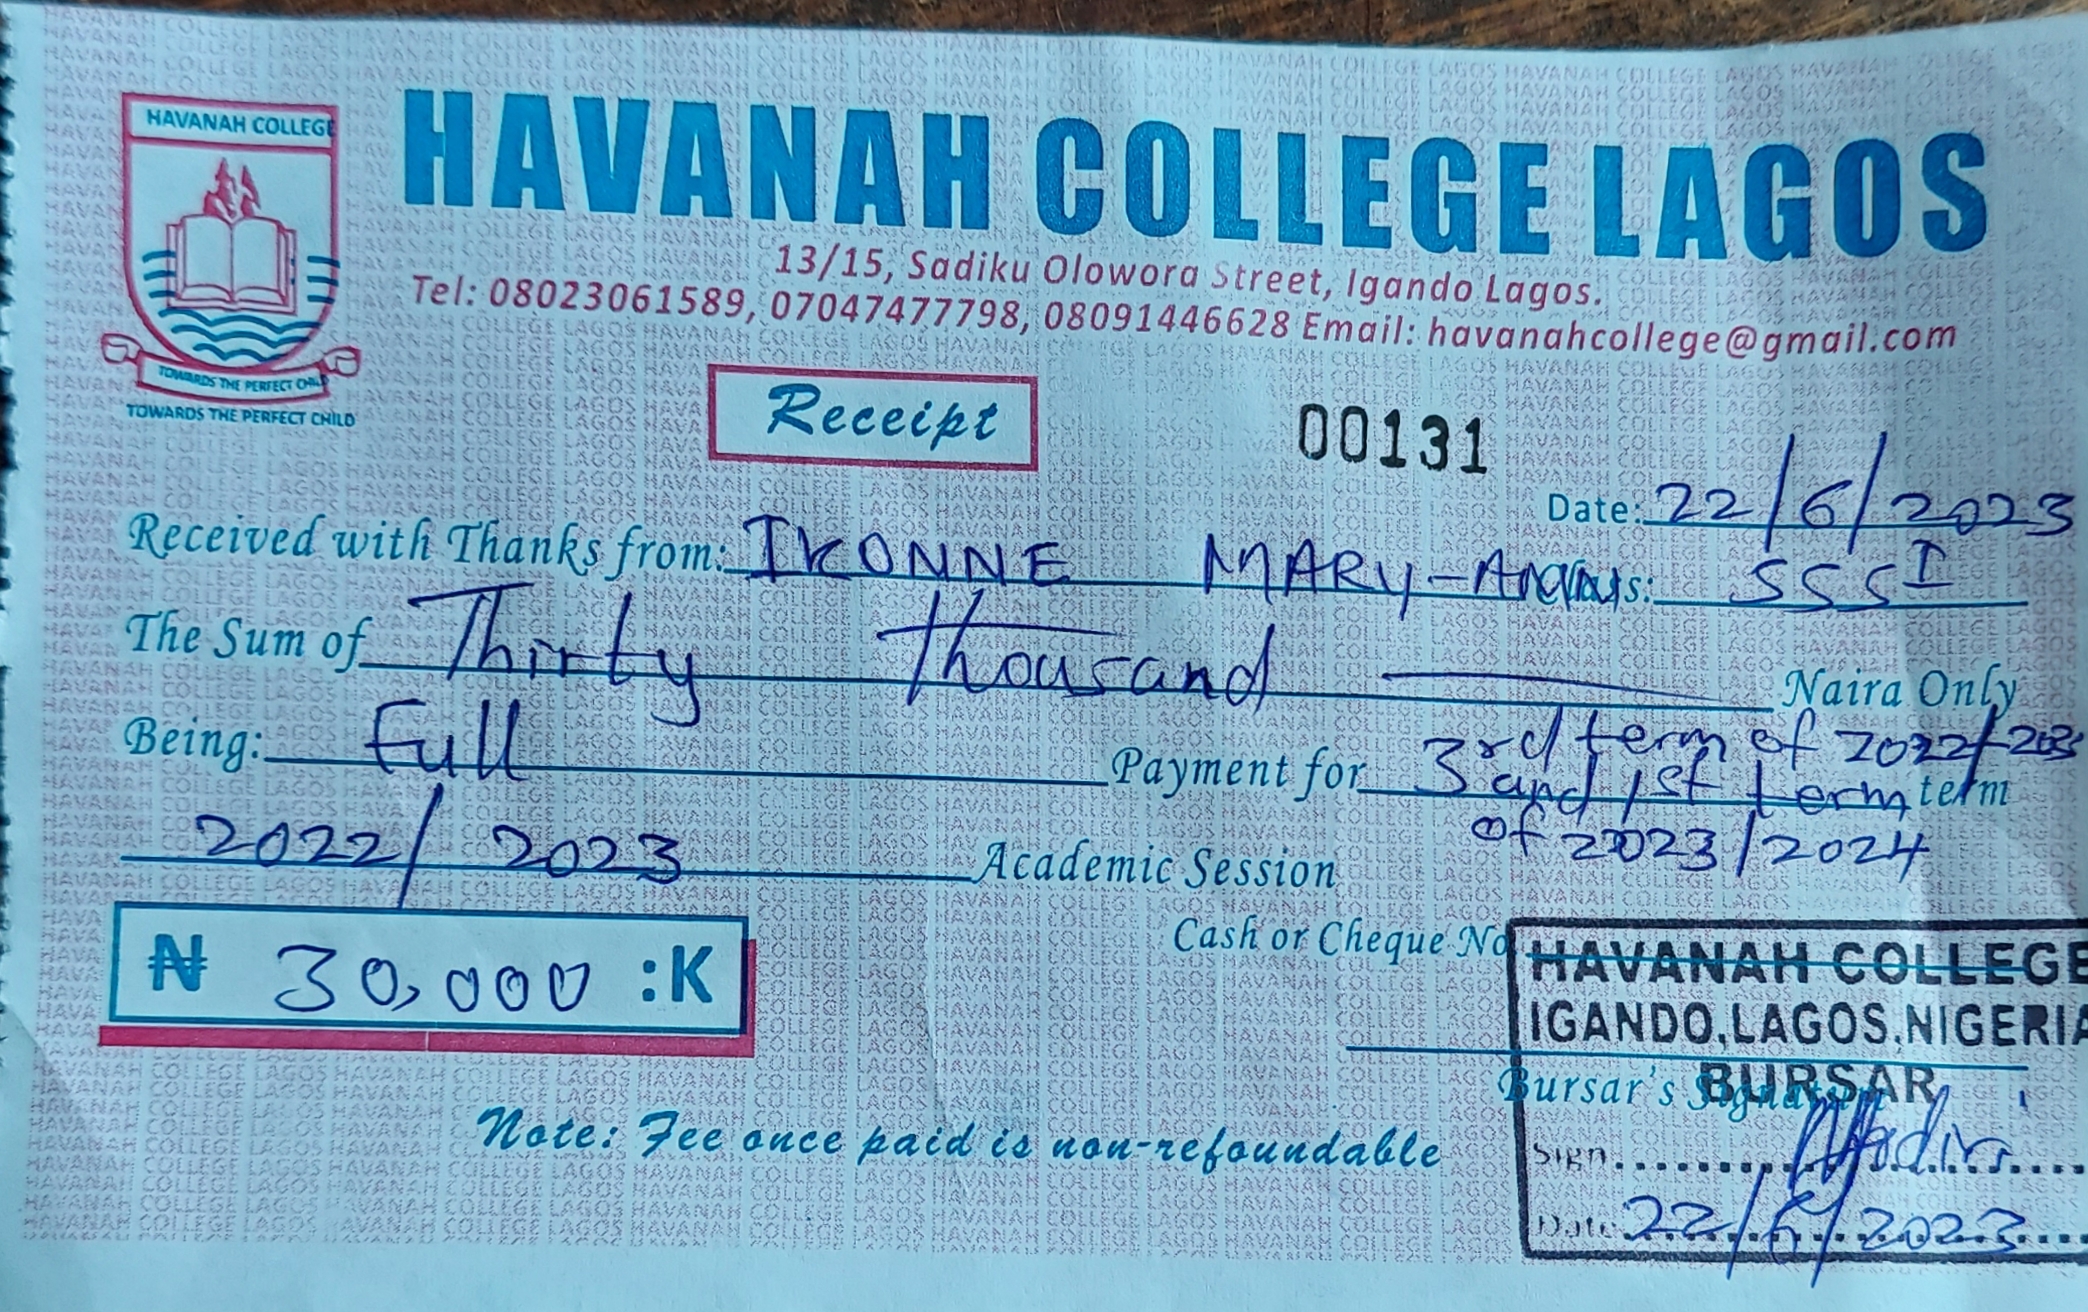 HAVANAH COLLEGE
TOWARDS THE PERFECT CHILD
TOWARDS THE PERFECT CHILD
HAVANAH COLLEGE LAGOS
13/15, Sadiku Olowora Street, Igando Lagos.
Tel: 08023061589, 07047477798, 08091446628 Email: havanahcollege@gmail.com
Receipt
00131
Date: 22/6/2023
Received with Thanks from: IKONNE MARY- SSS I
The Sum of Thirty Thousand Naira Only
Being: Full Payment for 3rd term of 2022/
and 1st term term
of 2023/2024
2022/2023 Academic Session
₦ 30,000 :K
Cash or Cheque No
HAVANAH COLLEGE
IGANDO, LAGOS, NIGERIA
BURSAR
Bursar's Signature
Sign.
Date 22/6/2023
Note: Fee once paid is non-refoundable